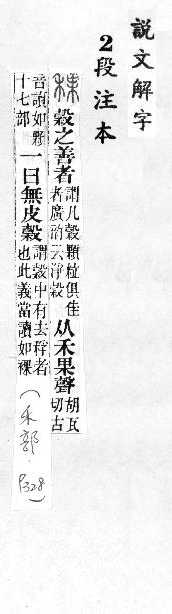 說文解字
2段注本
稞 穀之善者 謂凡穀顆粒俱佳者廣韵云淨穀 从禾果聲 胡瓦切古
音讀如顆十七部 一曰無皮穀 謂穀中有去稃者也此義當讀如裸
(禾部. P328)